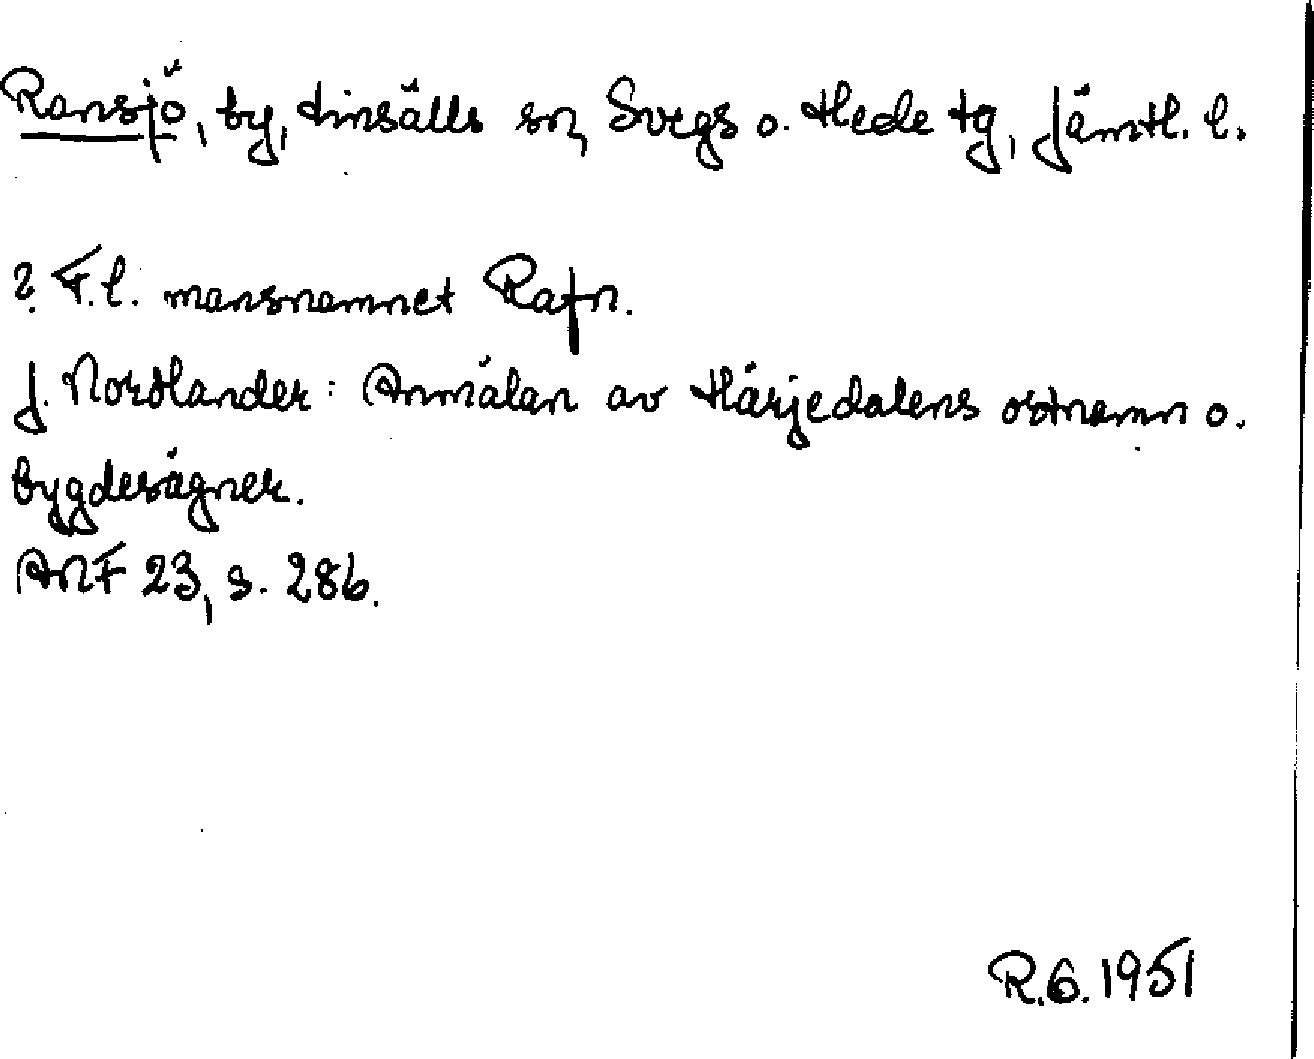 Ransjö, by, Linsälls sn, Svegs o. Hede tg, Jämtl. l.
? F.l. mansnamnet Rafn.
J. Nordlander: Anmälan av Härjedalens ortnamn o.
bygdesägner.
ANF 23, s. 286.
R.G. 1951